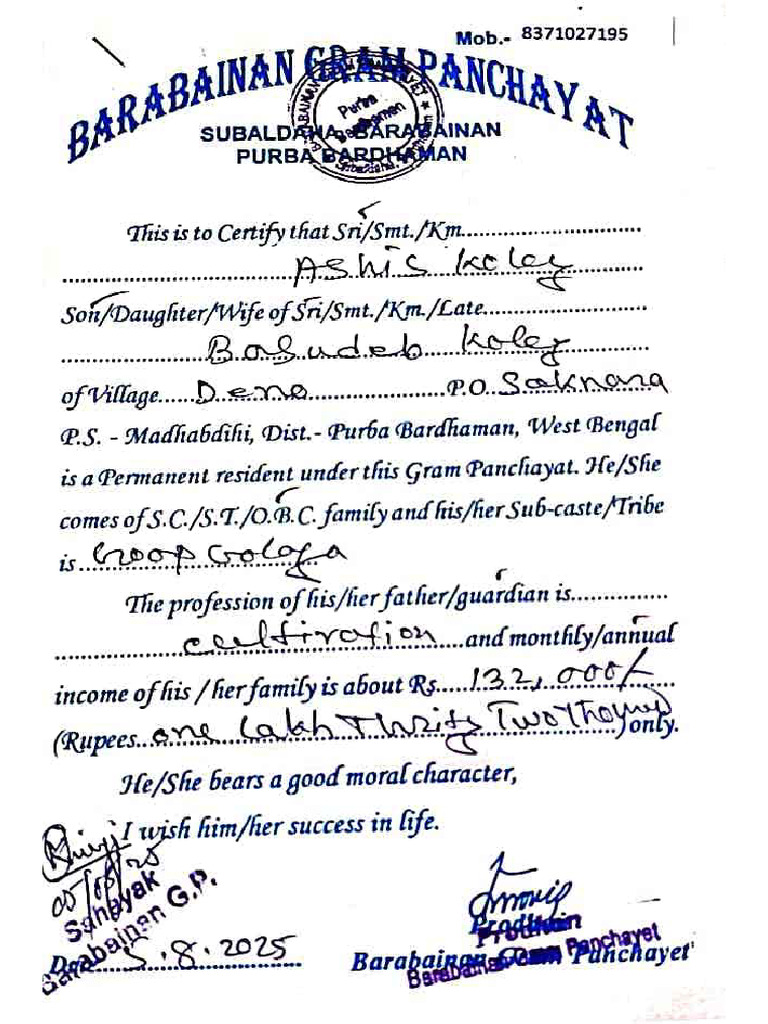 Mob.- 8371027195
BARABAINAN GRAM PANCHAYAT
SUBALDAHA, BARABAINAN
PURBA BARDHAMAN
Purba
Bardhaman
This is to Certify that Sri/Smt./Km..............................
Ashis Koley
Son/Daughter/Wife of Sri/Smt./Km./Late...........................
Basudeb Koley
of Village......Dena.......................P.O. Saknara
P.S. - Madhabdihi, Dist.- Purba Bardhaman, West Bengal
is a Permanent resident under this Gram Panchayat. He/She
comes of S.C./S.T./O.B.C. family and his/her Sub-caste/Tribe
is
The profession of his/her father/guardian is...............
cultivation....and monthly/annual
income of his / her family is about Rs.....132,000/-
(Rupees...one Lakh Thrity Two Thousand) only.
He/She bears a good moral character,
I wish him/her success in life.
05/08/25
Sahayak
Barabainan G.P.
5.8.2025
Prodhan
Prodhan
Barabainan Gram Panchayet
Barabainan Gram Panchayet